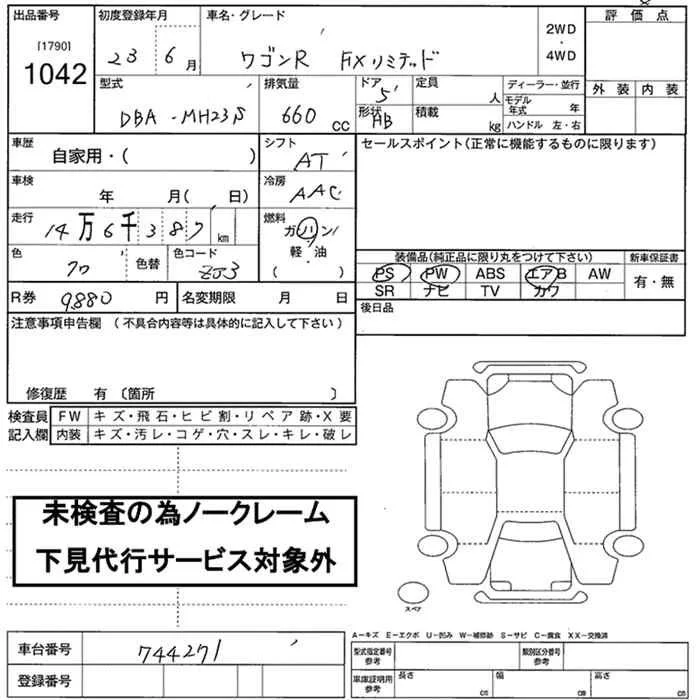 出品番号 初度登録年月 車名・グレード 評価点
[1790]
1042
23 6月 ワゴンR FXリミテッド 2WD・4WD
型式 排気量 ドア 定員 ディーラー・並行 外装 内装
DBA-MH23S 660cc 5 人 モデル年式 年
形状 AB 積載 kg ハンドル 左・右
車歴 シフト セールスポイント(正常に機能するものに限ります)
自家用・( ) AT
車検 冷房
年 月( 日) AAC
走行 燃料
14万6千387km ガソリン
軽・油
( )
色 色替 色コード 装備品(純正品に限り丸をつけて下さい) 新車保証書
ZJ3 PS PW ABS エアB AW 有・無
SR ナビ TV カワ
R券 9880円 名変期限 月 日 後日品
注意事項申告欄 (不具合内容等は具体的に記入して下さい)
修復歴 有 〔箇所 〕
検査員 FW キズ・飛石・ヒビ割・リペア跡・X要
記入欄 内装 キズ・汚レ・コゲ・穴・スレ・キレ・破レ
未検査の為ノークレーム
下見代行サービス対象外
スペア
A−キズ E−エクボ U−凹み W−補修跡 S−サビ C−腐食 XX−交換済
車台番号 744271 型式指定番号 参考 類別区分番号 参考
登録番号 車庫証明用 参考 長さ cm 幅 cm 高さ cm